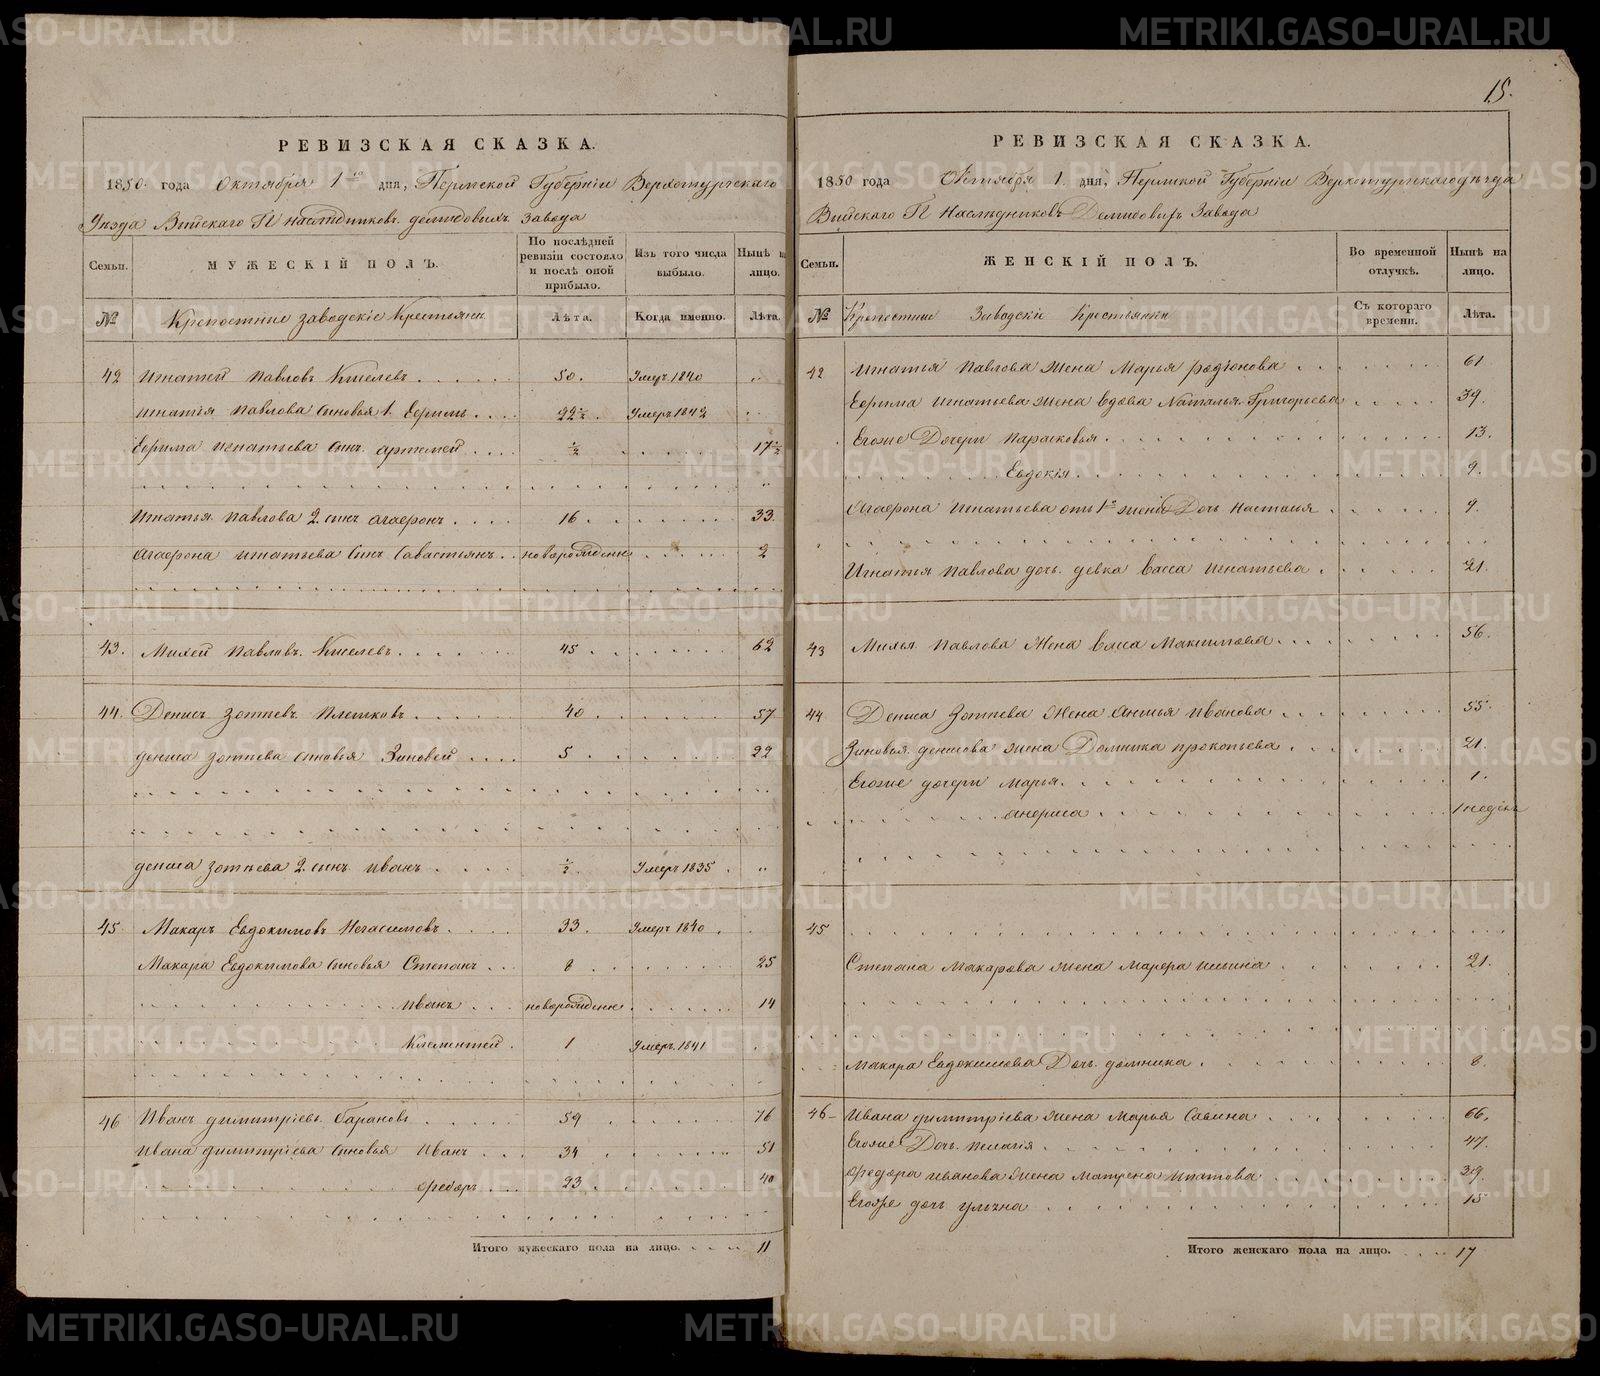 15.
РЕВИЗСКАЯ СКАЗКА.
1850 года Октября 1го дня, Пермской Губерніи Верхотурскаго
Уезда Выйскаго Г.П. наследниковъ демидовыхъ завода
Семьи. МУЖЕСКІЙ ПОЛЪ. По послѣдней ревизіи состояло и послѣ оной прибыло. Изъ того числа выбыло. Нынѣ на лицо.
№ Крепостные заводскіе Крестьяне Лѣта. Когда именно. Лѣта.
42 Игнатей Павловъ Киселевъ 50. Умеръ 1840 "
Игнатія Павлова сыновья 1. Ефримъ 22½. Умеръ 1842
Ефрима Игнатьева сынъ артемей ½ 17½
Игнатья Павлова 2. сынъ агафонъ 16 33
Агафона игнатьева сынъ Савастьянъ новорожденн 2
43. Михей Павловъ Киселевъ 45 62
44. Денисъ Зотеевъ Плешковъ 40 57
дениса зотеева сыновья Зиновей 5 22
дениса зотеева 2. сынъ иванъ ½ Умеръ 1835 "
45 Макаръ Евдокимовъ Негасимовъ 33 Умеръ 1840
Макара Евдокимова сыновья Степанъ 8 25
иванъ новорожденн 14
Клементей 1 Умеръ 1841
46 Иванъ димитріевъ Барановъ 59 76
Ивана димитріева сыновья Иванъ 34 51
федоръ 23 40
Итого мужескаго пола на лицо. 11
РЕВИЗСКАЯ СКАЗКА.
1850 года Октября 1. дня, Пермской Губерніи Верхотурскаго уезда
Выйскаго Г.П. Наследниковъ Демидовыхъ Завода
Семьи. ЖЕНСКІЙ ПОЛЪ. Во временной отлучкѣ. Нынѣ на лицо.
№ Крепостные Заводскіе Крестьянки Съ котораго времени. Лѣта.
42 Игнатья Павлова жена Марья родіонова 61
Ефрима Игнатьева жена вдова Наталья Григорьева 39.
Егоже Дочери Парасковья 13.
Евдокія 9.
Агафона Игнатьева отъ 1й жены Дочь настасья 9.
Игнатья Павлова дочь девка васса игнатьева 21.
43 Михея Павлова Жена васса Максимова 56.
44 Дениса Зотеева Жена Анисья Иванова 55.
Зиновья денисова жена Домника прокопьева 21.
Егоже дочери Марья 1.
анфиса 1 недель
45
Степана Макарова жена Марфа ильина 21.
Макара Евдокимова Дочь домника 8.
46 Ивана димитріева жена Марья Савина 66.
Егоже Дочь пелагія 47.
Федора иванова Жена Матрена ипатова 39.
Егоже дочь ульяна 15
Итого женскаго пола на лицо. 17
METRIKI.GASO-URAL.RU